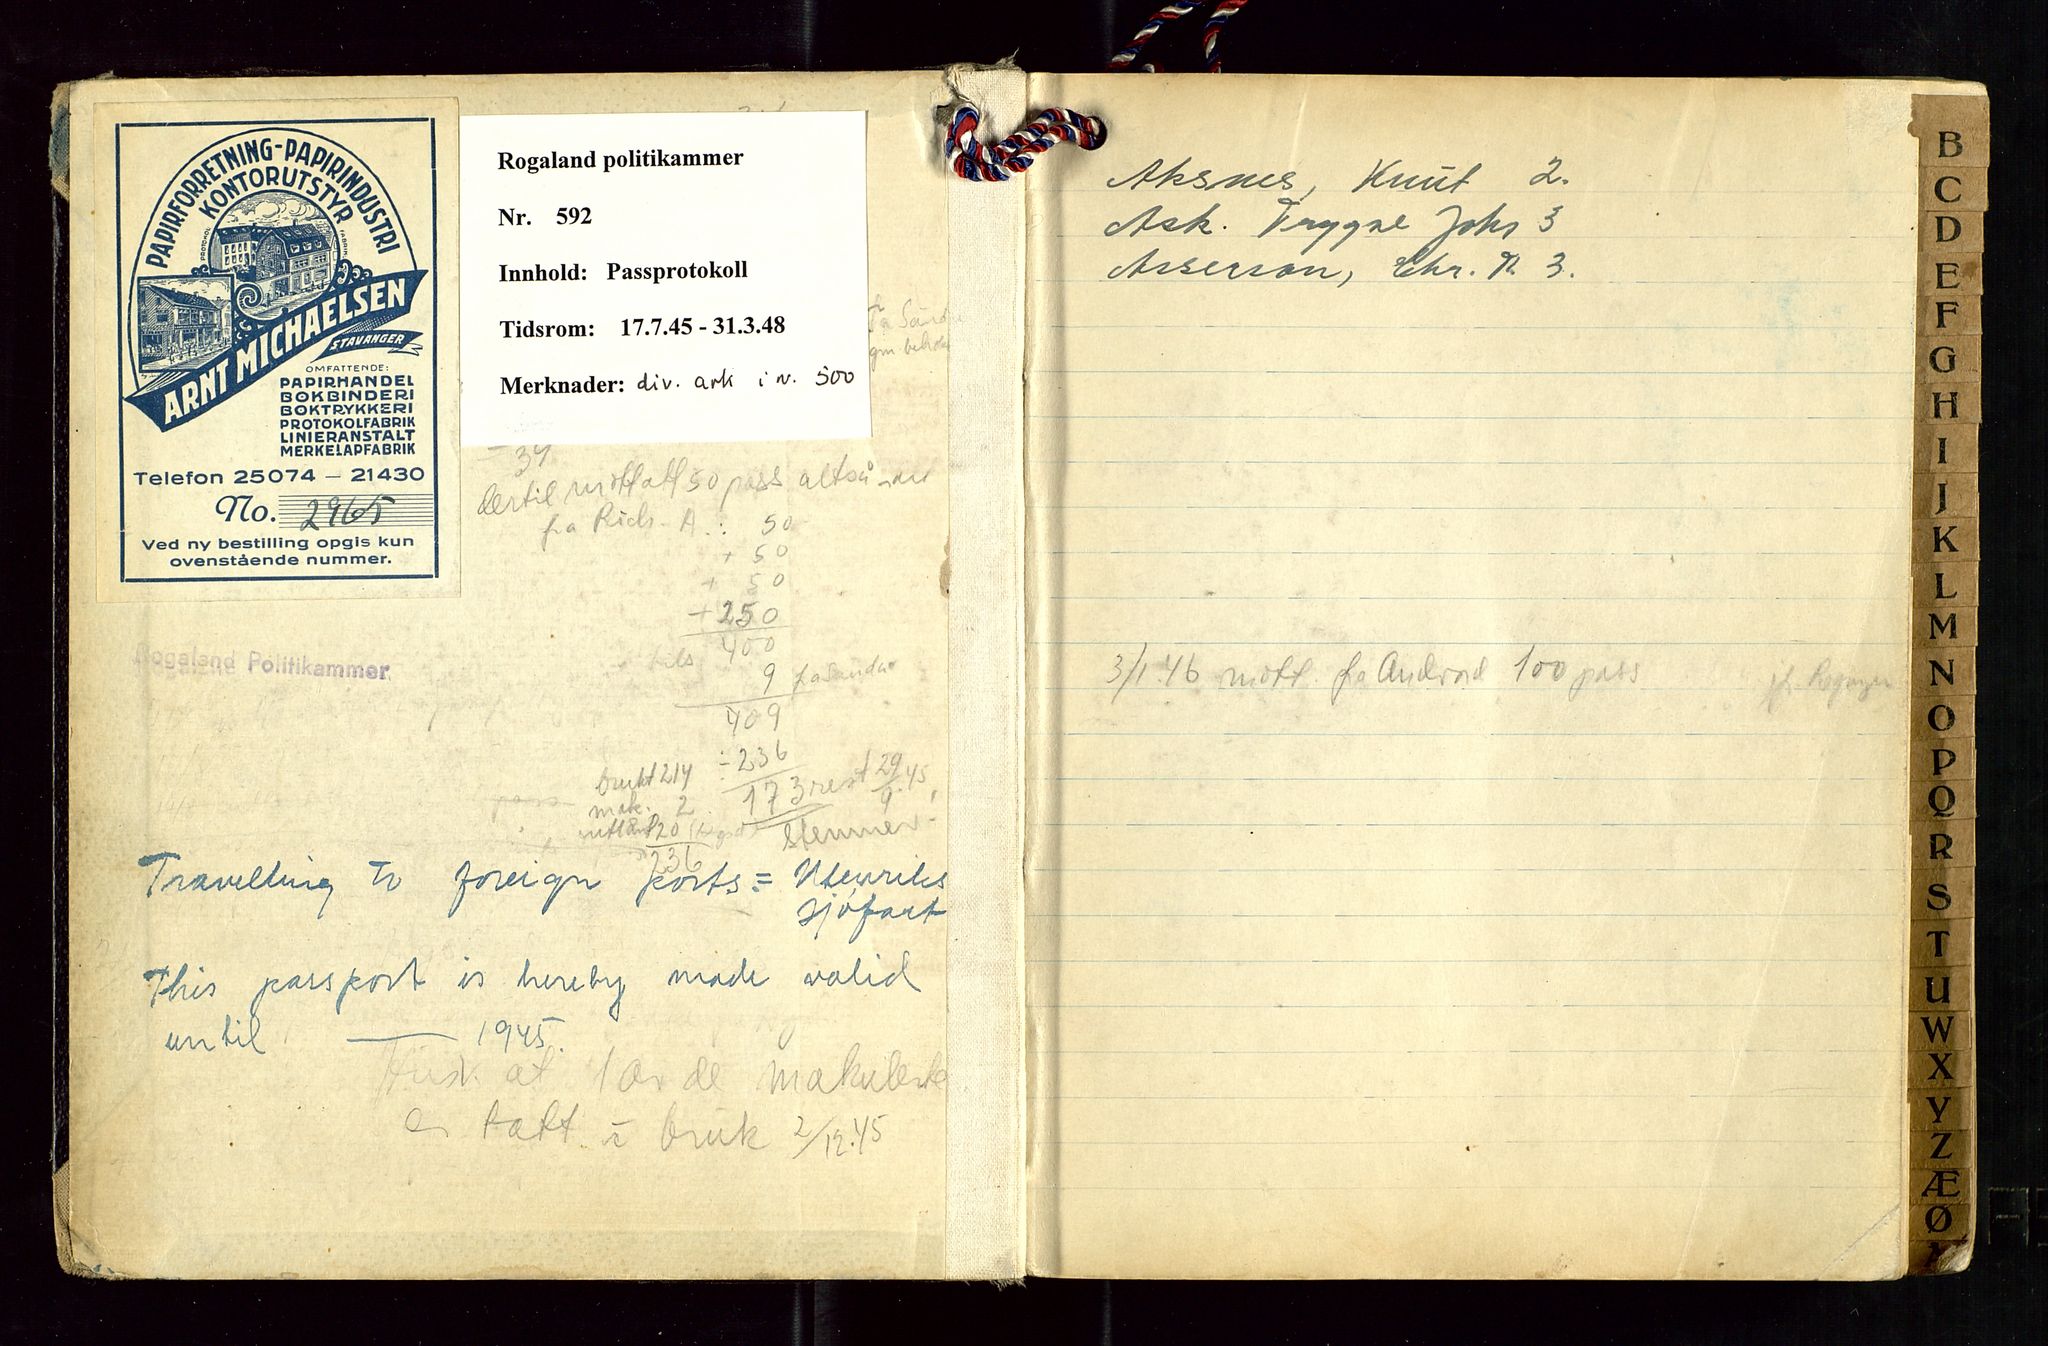 PAPIRFORRETNING-PAPIRINDUSTRI
KONTORUTSTYR
PROTOKOL FABRIK
ARNT MICHAELSEN
STAVANGER
OMFATTENDE:
PAPIRHANDEL
BOKBINDERI
BOKTRYKKERI
PROTOKOLFABRIK
LINIERANSTALT
MERKELAPFABRIK
Telefon 25074 – 21430
No. 2965
Ved ny bestilling opgis kun
ovenstående nummer.
Rogaland politikammer
Nr. 592
Innhold: Passprotokoll
Tidsrom: 17.7.45 - 31.3.48
Merknader: div. ark i nr. 500
34
dertil mottatt 50 pass altså
fra Rich. A.: 50
+ 50
+ 50
+ 250
400
9 fra Sandar
409
÷ 236
173 rest 29/9.45
stemmer
brukt 214
mak. 2
20
236
Rogaland Politikammer
Travelling to foreign ports = Utenriks
sjøfart
This passport is hereby made valid
until —— 1945.
Husk at 1 av de makulerte
er tatt i bruk 2/12.45
Aksnes, Knut 2.
Ask. Trygve Johs 3
Asserson, Chr. R. 3.
3/1.46 mott. fra 100 pass
B
C
D
E
F
G
H
I
J
K
L
M
N
O
P
Q
R
S
T
U
W
X
Y
Z
Æ
Ø